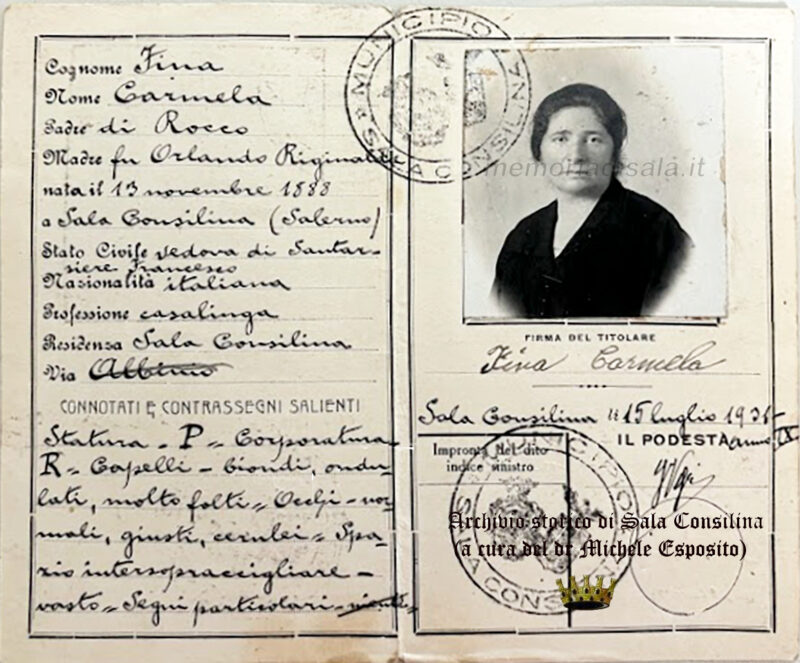 Cognome Fina
Nome Carmela
Padre di Rocco
Madre fu Orlando
nata il 13 novembre 1888
a Sala Consilina (Salerno)
Stato Civile vedova di Santar-
siere Francesco
Nazionalità italiana
Professione casalinga
Residenza Sala Consilina
Via Albinio
CONNOTATI E CONTRASSEGNI SALIENTI
Statura - P - Corporatura
R - Capelli - biondi, ondu-
lati, molto folti = Occhi - nor-
mali, giusti, cerulei = Spa-
zio intersopraccigliare -
vasto = Segni particolari -
MUNICIPIO
SALA CONSILINA
memoriadisala.it
FIRMA DEL TITOLARE
Fina Carmela
Sala Consilina il 15 luglio
IL PODESTA anno IX
Impronta del dito
indice sinistro
MUNICIPIO
SALA CONSILINA
Archivio storico di Sala Consilina
(a cura del dr Michele Esposito)